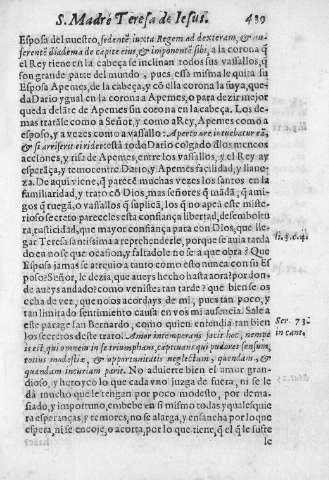 S. Madre Teresa de Iesus. 439
Esposa del nuestro, sedentē iuxta Regem ad dexteram, & au-
ferentē diadema de capite eius, & imponentē sibi, a la corona q̄
el Rey tiene en la cabeça se inclinan todos sus vassallos, q̄
son grande parte del mundo, pues essa misma le quita su
Esposa Apemes, de la cabeça, y cō ella corona la suya, que-
da Dario ygual en la corona a Apemes, o para dezir mejor
queda delāte de Apemes sin corona en la cabeça. Los de-
mas tratāle como a Señor, y como a Rey, Apemes como a
esposo, y a vezes como a vassallo: Aperto ore intuebatur eā,
& si arriserit ei ridet: está todo Dario colgado d los meneos
acciones, y risa de Apemes, entre los vassallos, y el Rey ay
esperāça, y temor entre Dario, y Apemes facilidad, y llane-
za. De aqui viene, q̄ parecē muchas vezes los santos en la
familiaridad, y trato cō Dios, mas señores q̄ nadā, q̄ ami-
gos q̄ ruegā, o vassallos q̄ suplicā, los q̄ no apea este mis-
terioso secreto pareceles esta confiança libertad, desemboltu
ra, rusticidad, que mayor confiança para con Dios, que lle-
gar Teresa santissima a reprehenderle, porque se auia tarda
do en no se que ocasion, y faltadole en no se a que obra? Que
Esposa jamas se atreuio a tanto como esto nunca con su Es
poso? Señor, le dezia, que aueys hecho hasta aora? por don-
de aueys andado? como venistes tan tarde? que bien se os
echa de ver, que no os acordays de mi, pues tan poco, y
tan limitado sentimiento causa en vos mi ausencia. Sale a
este parage san Bernardo, como quien entendia tambien
los secretos deste trato. Amor intemperans facit hoc, nempe
is est, qui omnem in se triumphans, captiuans q̄ui pudoris sensum,
totius modestiæ, & opportunitatis neglectum, quendam, &
quandam incuriam parit. No aduierte bien el amor gran-
dioso, y heroyco lo que cada vno juzga de fuera, ni se le
dà mucho que le tengan por poco modesto, por dema-
siado, y importuno, embebe en si mismo todas y qualesquie
ra esperanças, y temores, no se alarga, y ensancha por lo que
espera, ni se encoje, o acorta, por lo que tiene, q̄ el q̄ le suste
le
Ser. 73.
in cant.